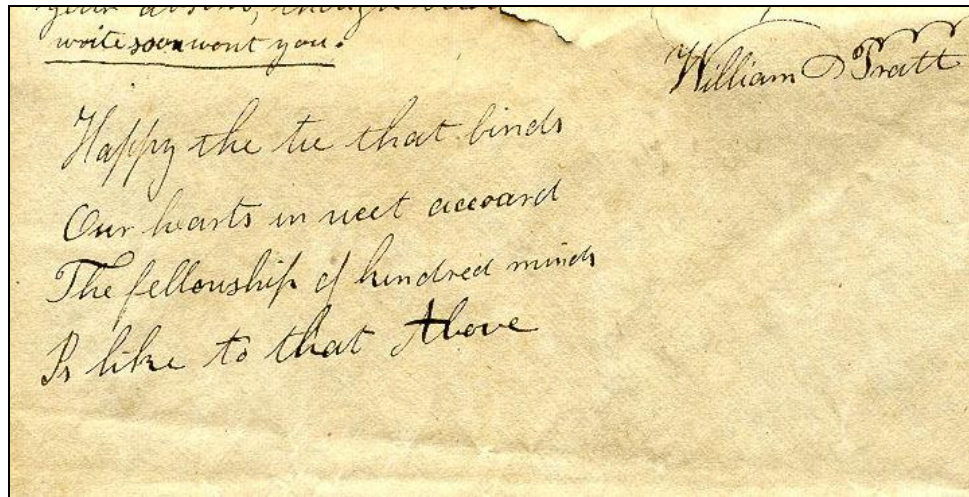 write soon wont you.
William D Pratt
Happy the tie that binds
Our hearts in accoard
The fellowship of kindred minds
Is like to that Above